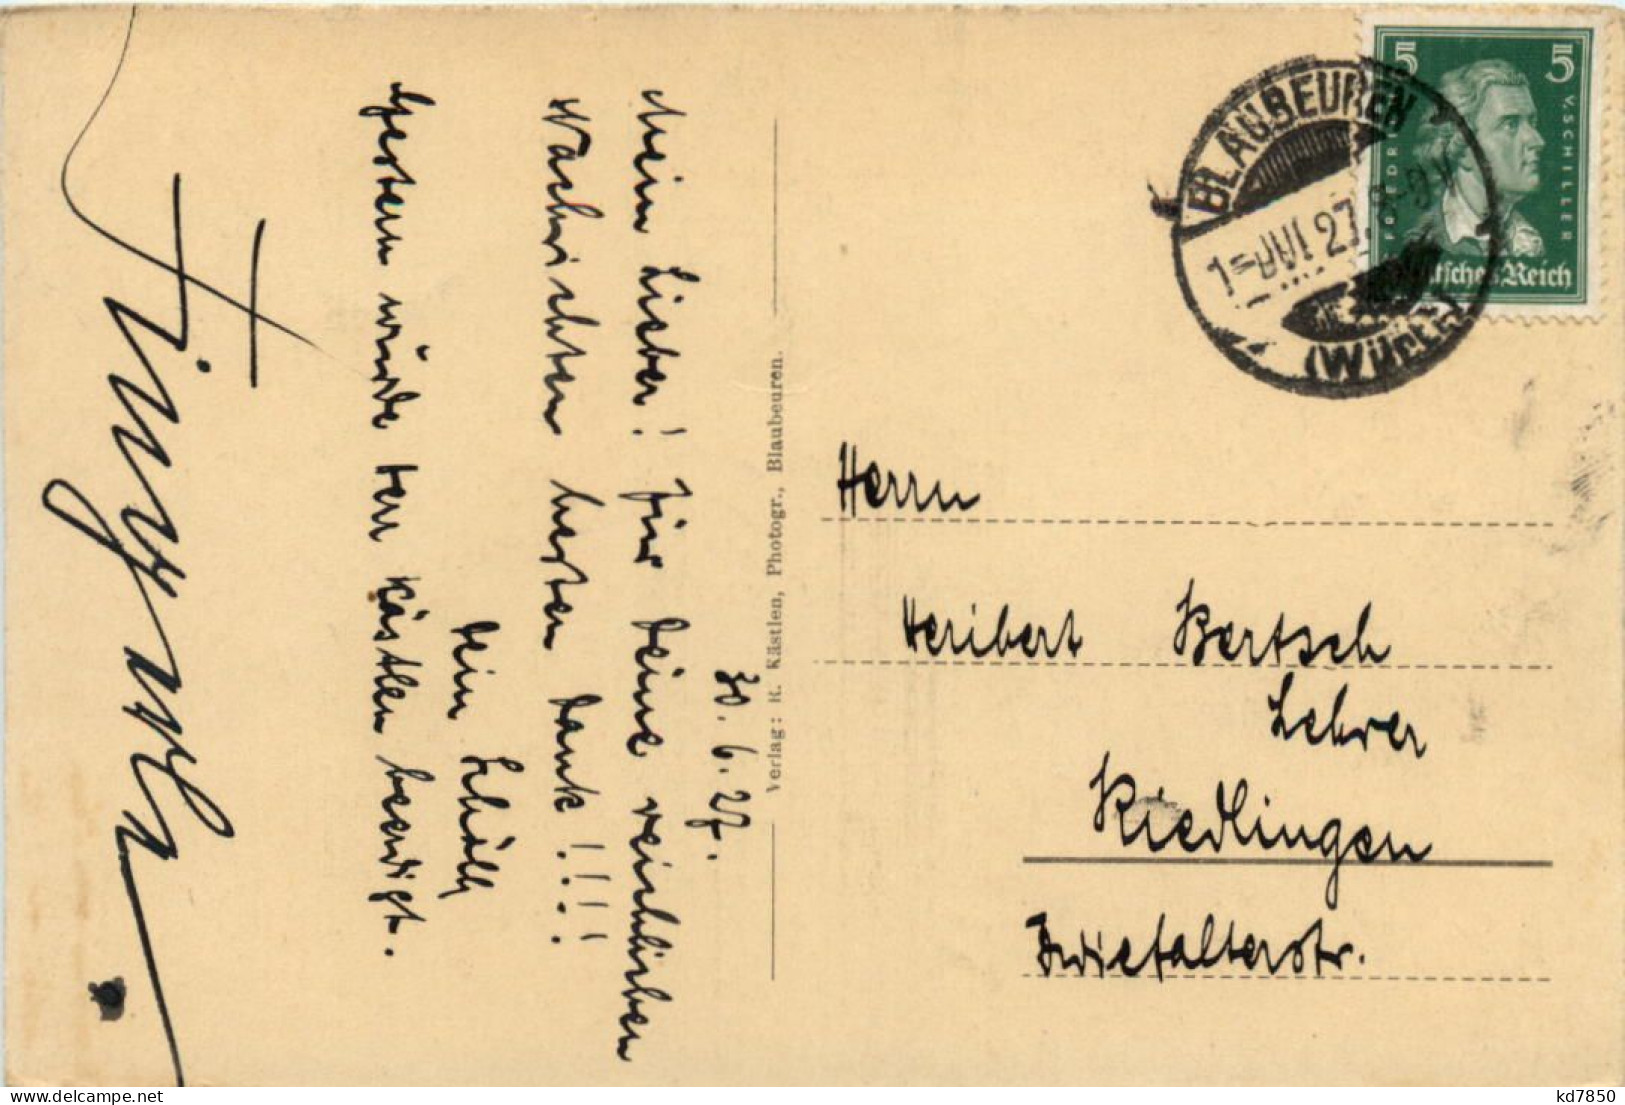 30. 6. 27.
Mein Lieber! Für Deine reichlichen
Nachrichten besten Dank!!!!
Dein
Gestern wurde Herr Kästlen beerdigt.
Verlag: R. Kästlen, Photogr., Blaubeuren.
BLAUBEUREN
1-JUL 27. 8-9 V
(WÜRTT)
5 5
FRIEDR V. SCHILLER
Deutsches Reich
Herrn
Heribert Bertsch
Lehrer
Riedlingen
Zwiefalterstr.
kd7850